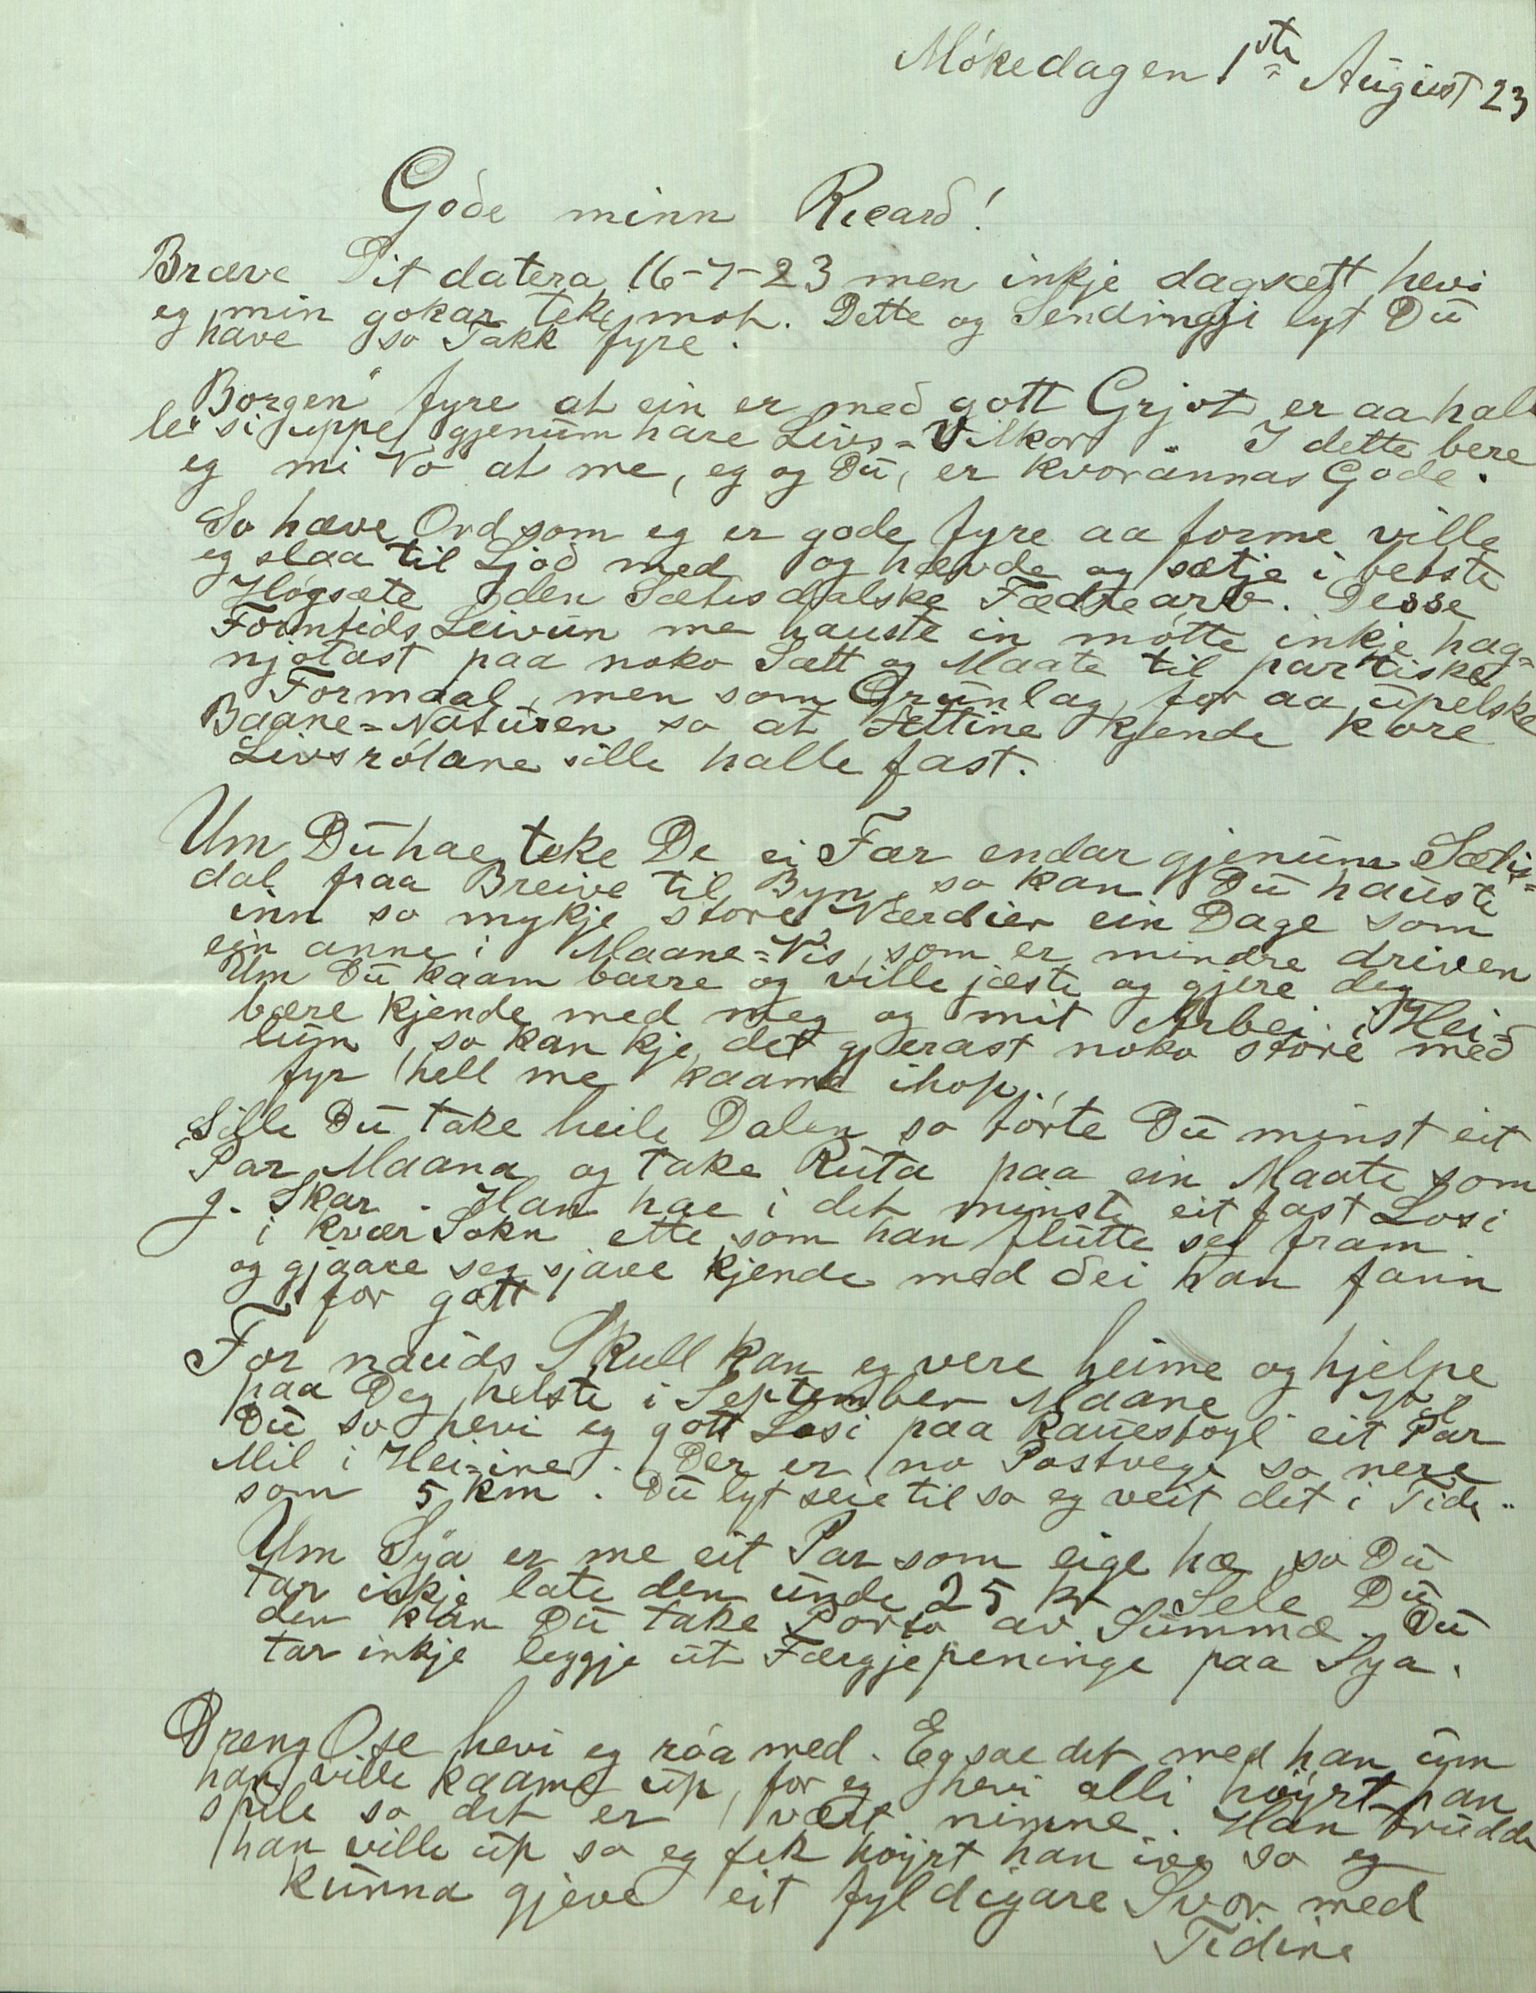 Mókedagen 1ste August 23
Gode minn Ricard!
Bræve Dit datera 16-7-23 men inkje dagsett hevi
eg min gokar teke moh. Dette og Sendinggji lyt Du
have so Takk fyre.
Borgen" fyre at ein er med gott Grjot er aa hal
le" si uppe gjenum hare Livs-Vilkor. I dette bere
eg mi Vo at me, eg og Du, er kvorannas Gode.
So hæve Ord som eg er gode fyre aa forme ville
eg slaa til Ljod med og hævde og sætje i beste
Høgsæte den Sætisdalske Fædrearv. Desse
Forntids Leivun me hauste in mótte inkje hag-
njotast paa noko Sætt og Maate til partiske
Formaal, men som Grunlag for aa upelske
Baane-Naturen so at Ættine kjende kore
Livsrótane sille halle fast.
Um Du hae teke De ei Fær endar gjenum Sætis-
dal fraa Breive til Byn, so kan Du hauste
inn so mykje store Værdier ein Dage som
ein anne i Maane-Vis, som er mindre driven
Um Du kaam barre og ville jæste og gjere deg
bære kjende med meg og mit Arbei i Hei-
lun, so kan kje det gjerast noko store med
fyr hell me kaame ihop.
Sille Du take heile Dalen so tórte Du minst eit
Par Maana og take Ruta paa ein Maate som
J. Skar. Han hae i det minste eit fast Losi
i kvær Sokn ette som han flutte seg fram
og gjaare seg sjave kjende med dei han fann
for gott
For nauds Skull kan eg vere heime og hjelpe
paa Deg helste i September Maane. Vil
Du so hevi eg gott Losi paa Kauestoyl eit Par
Mil i Hei-ine. Der er no Postvege so nere
som 5 km. Du lyt seie til so eg veit det i Tide..
Um Sya er me eit Par som eige hæ, so Du
tar inkje late den unde 25 kr Sele Du
den kan Du take Porto av Summæ. Du
tar inkje leggje ut Færgjepeninge paa Sya.
Dreng Ose hevi eg róa med. Eg sae det med han um
han ville kaame up, for eg hevi alli høyrt han
spile so det er vært nimne. Han trudde
han ville up so eg fek høyrt han ive so eg
kunna gjeve eit fyldigare Svor med
Tidine